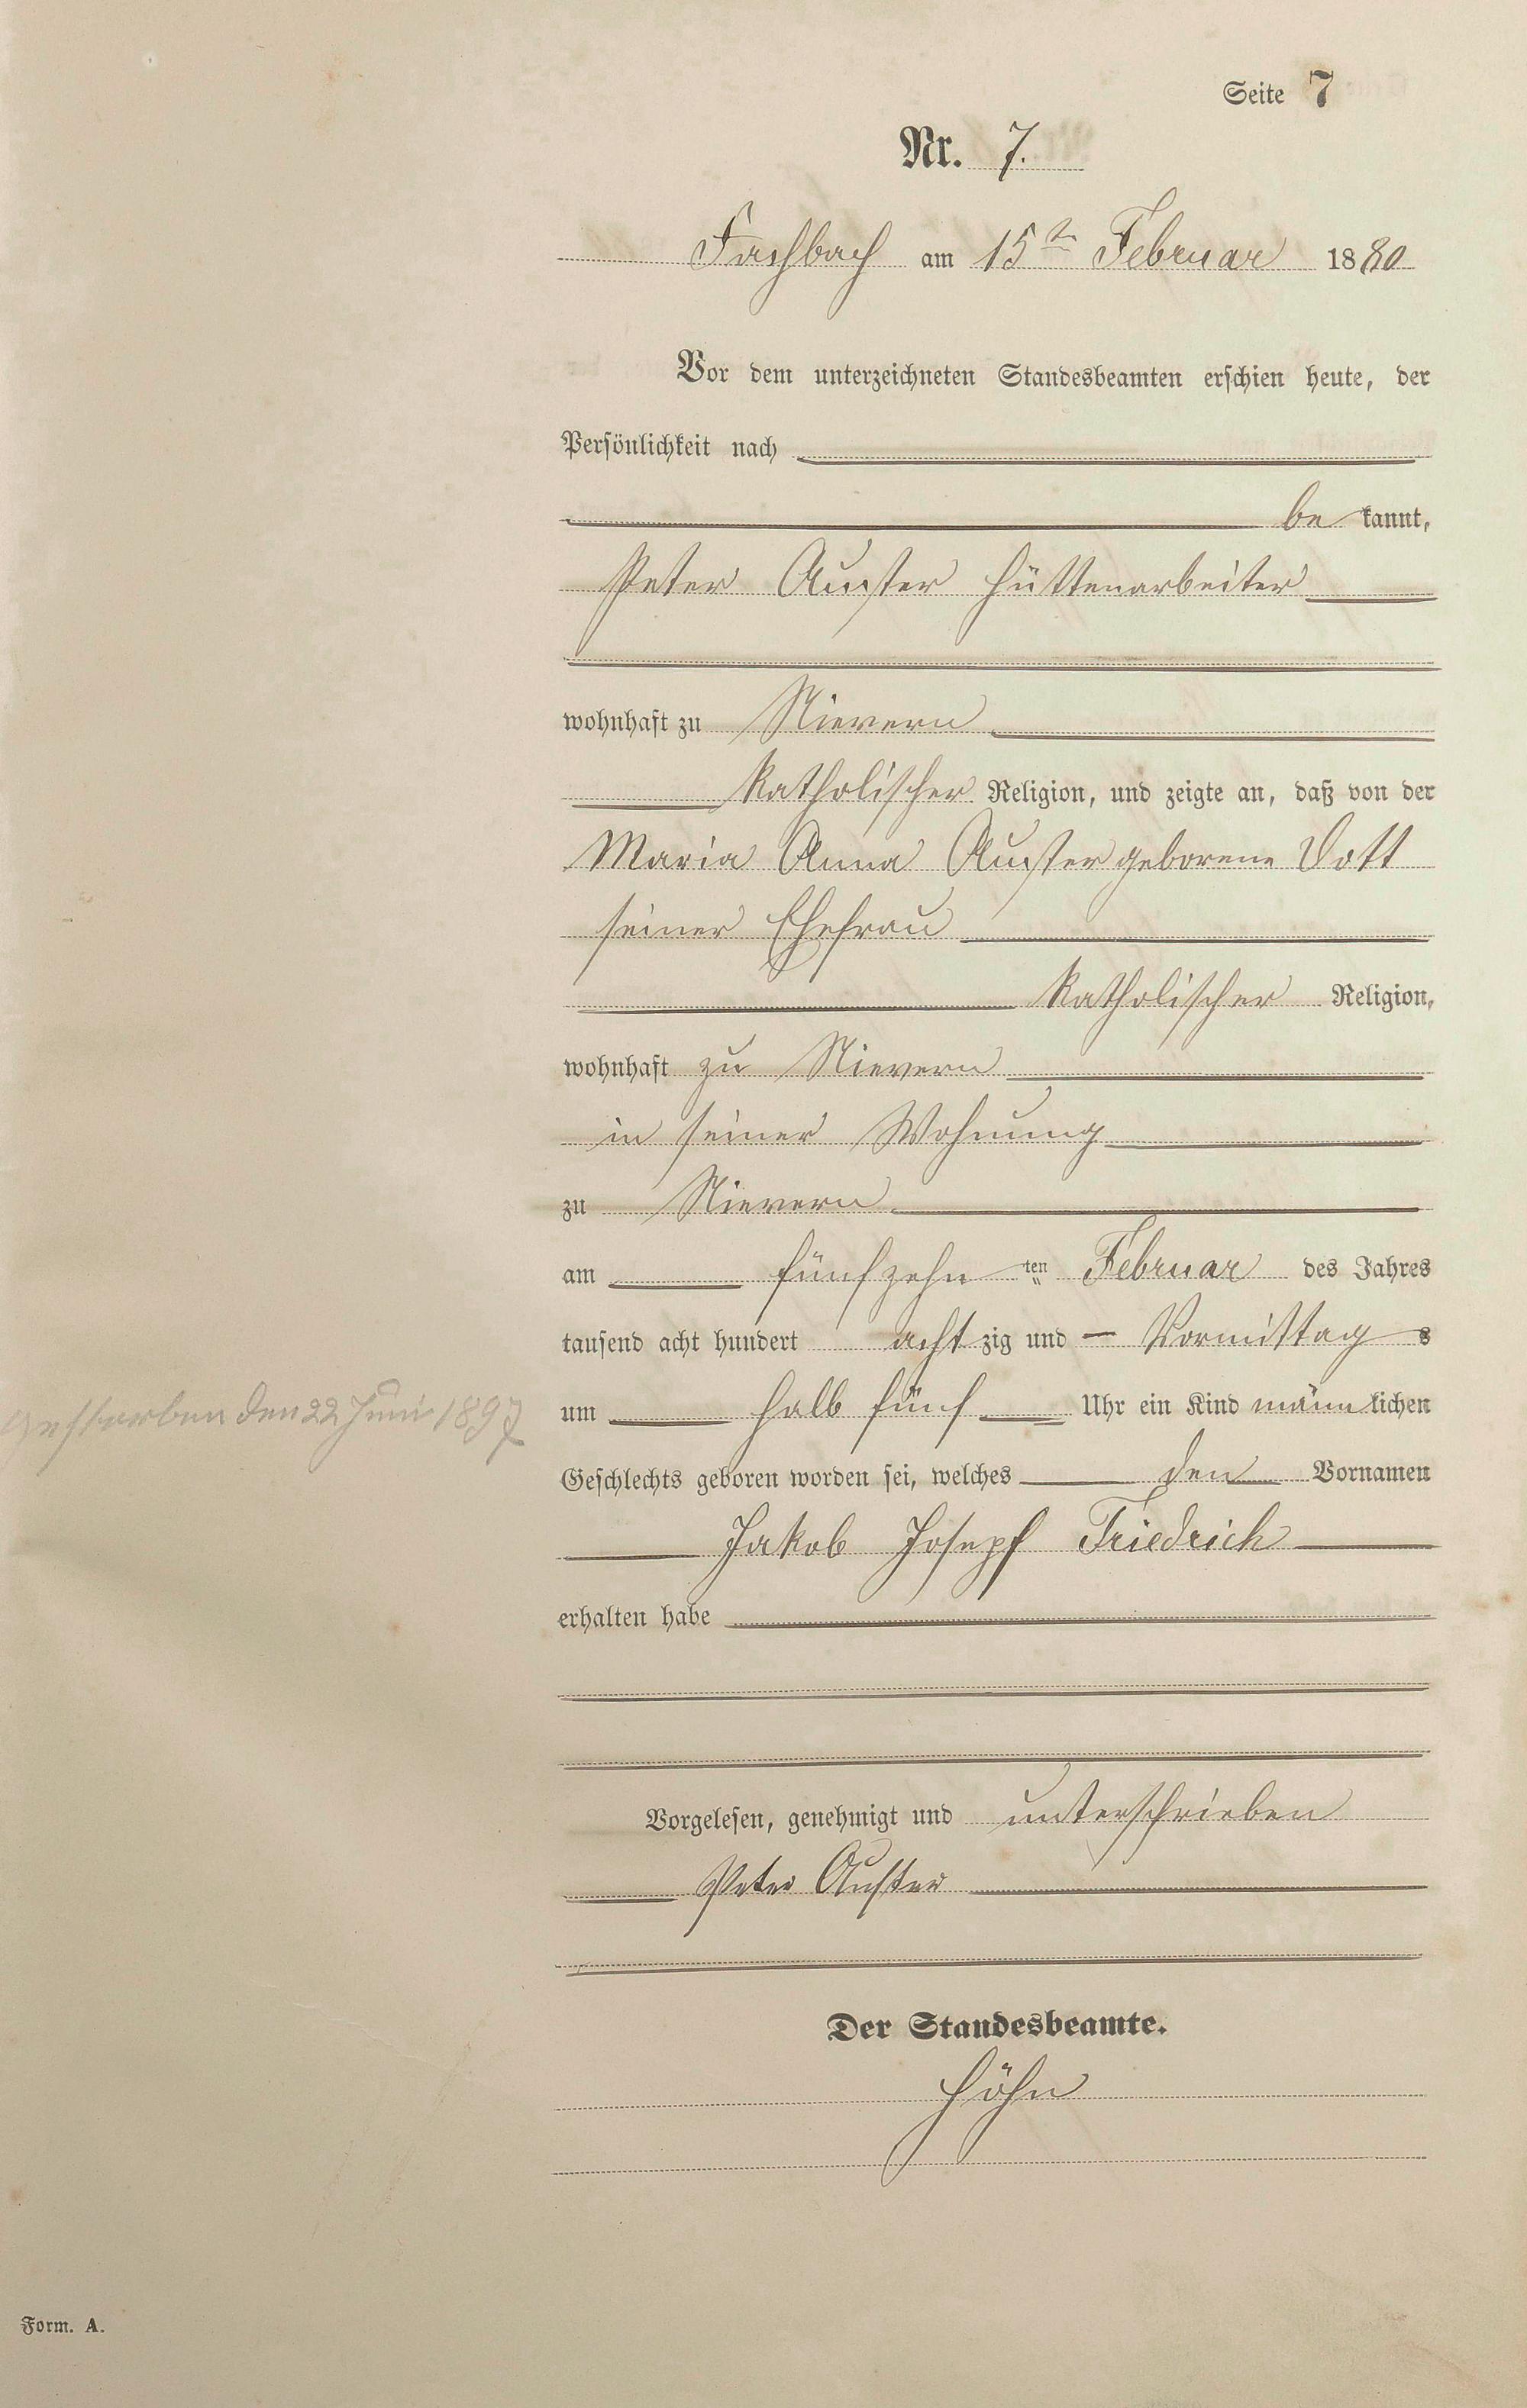 Seite 7
Nr. 7.
Fachbach am 15ten Februar 1880
Vor dem unterzeichneten Standesbeamten erschien heute, der
Persönlichkeit nach
be kannt,
Peter Auster Hüttenarbeiter
wohnhaft zu Nievern
katholischer Religion, und zeigte an, daß von der
Maria Anna Auster geborene Dott
seiner Ehefrau
katholischer Religion,
wohnhaft zu Nievern
in seiner Wohnung
zu Nievern
am fünfzehn ten Februar des Jahres
tausend acht hundert acht zig und — Vormittag s
um halb fünf Uhr ein Kind männ lichen
Geschlechts geboren worden sei, welches den Vornamen
Jakob Josepf Friedrich
erhalten habe
gestorben den 22 Juni 1897
Vorgelesen, genehmigt und unterschrieben
Peter Auster
Der Standesbeamte.
Höhn
Form. A.